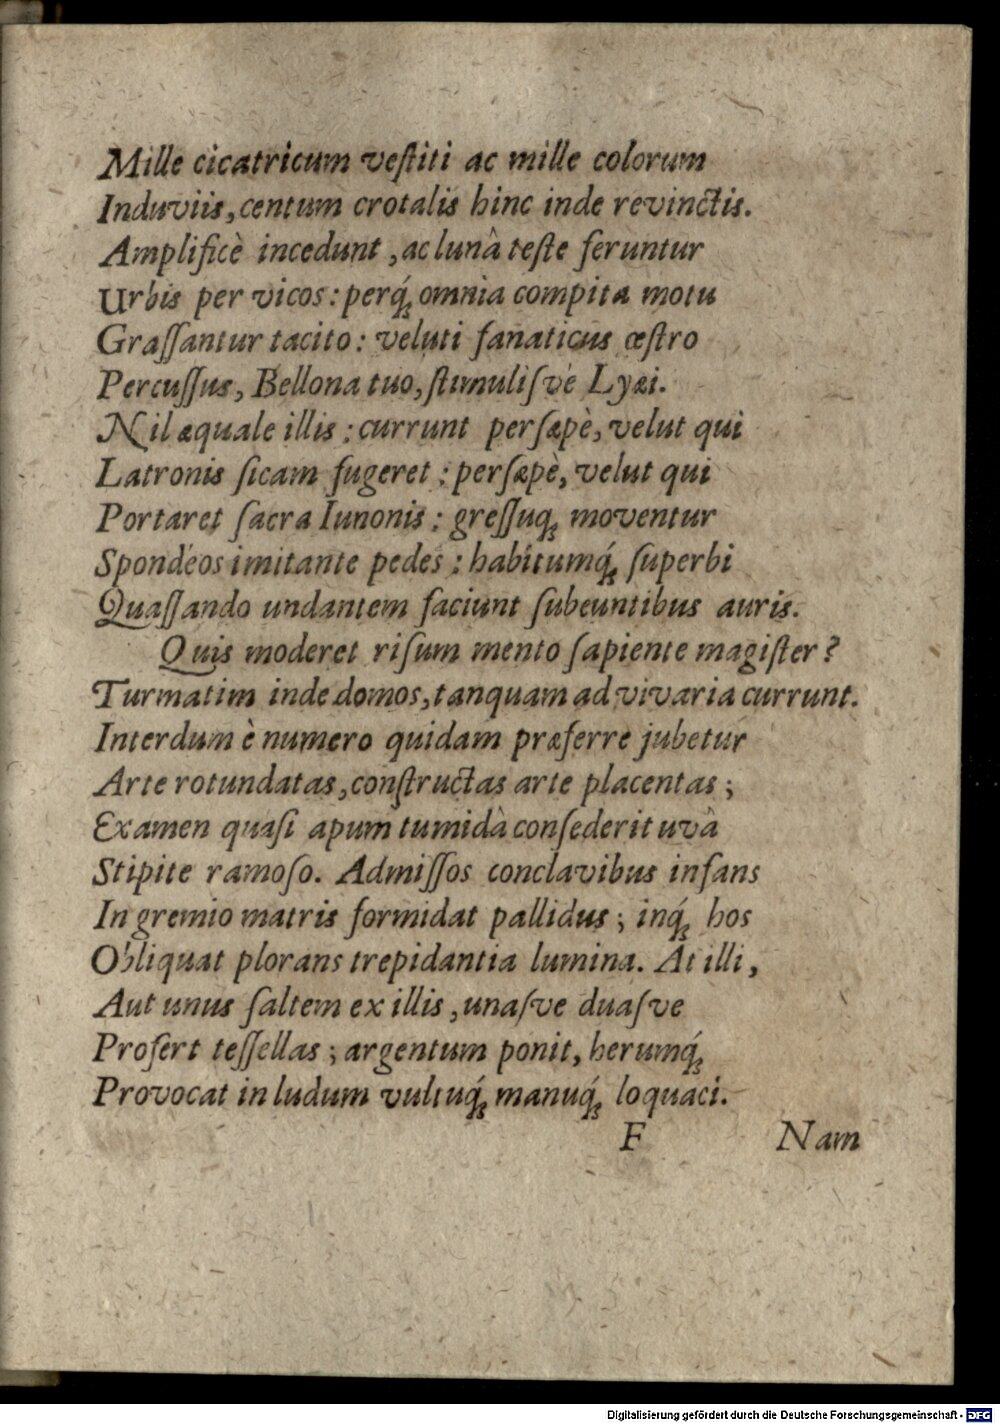 Mille cicatricum veſtiti ac mille colorum
Induviis, centum crotalis hinc inde revinctis.
Amplificè incedunt, ac lunâ teſte feruntur
Urbis per vicos: perq́; omnia compita motu
Graſſantur tacito: veluti fanaticus œſtro
Percuſſus, Bellona tuo, ſtimuliſvè Lyæi.
Nil æquale illis: currunt perſæpè, velut qui
Latronis ſicam fugeret: perſæpè, velut qui
Portaret ſacra Iunonis: greſſuq; moventur
Spondéos imitante pedes: habitumq́; ſuperbi
Quaſſando undantem faciunt ſubeuntibus auris.
Quis moderet riſum mento ſapiente magiſter?
Turmatim inde domos, tanquam ad vivaria currunt.
Interdum è numero quidam præferre jubetur
Arte rotundatas, conſtructas arte placentas;
Examen quaſi apum tumidâ conſederit uvâ
Stipite ramoſo. Admiſſos conclavibus infans
In gremio matris formidat pallidus; inq́; hos
Obliquat plorans trepidantia lumina. At illi,
Aut unus ſaltem ex illis, unaſve duaſve
Profert teſſellas; argentum ponit, herumq́;
Provocat in ludum vultuq́; manuq́; loquaci.
F Nam
Digitalisierung gefördert durch die Deutsche Forschungsgemeinschaft - DFG